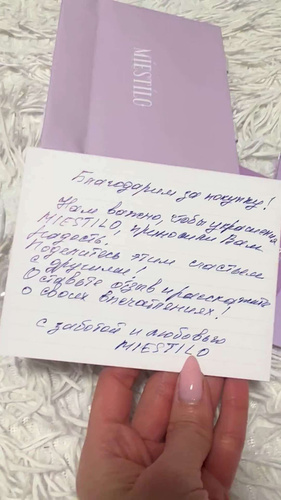 MIESTILO
Благодарим за покупку!
Нам важно, чтобы украшения
MIESTILO, приносили Вам
радость.
Поделитесь этим счастьем
с друзьями!
Оставьте отзыв и расскажите
о своих впечатлениях!
с заботой и любовью
MIESTILO